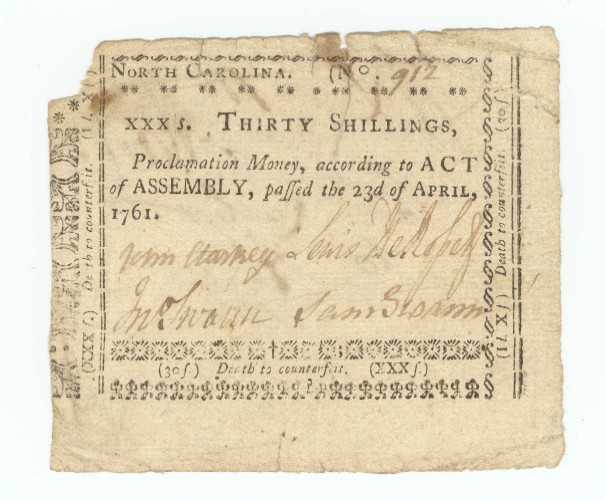 NORTH CAROLINA. (No. 912
XXX s. THIRTY SHILLINGS,
Proclamation Money, according to ACT
of ASSEMBLY, paſſed the 23d of APRIL,
1761.
John Starkey Lewis DeRosset
Jno Swann Sam Swann
(30ſ.) Death to counterfeit. (XXXſ.)
(XXXſ.) Death to counterfeit. (1l. Xſ)
(1l. Xſ) Death to counterfeit. (30ſ)